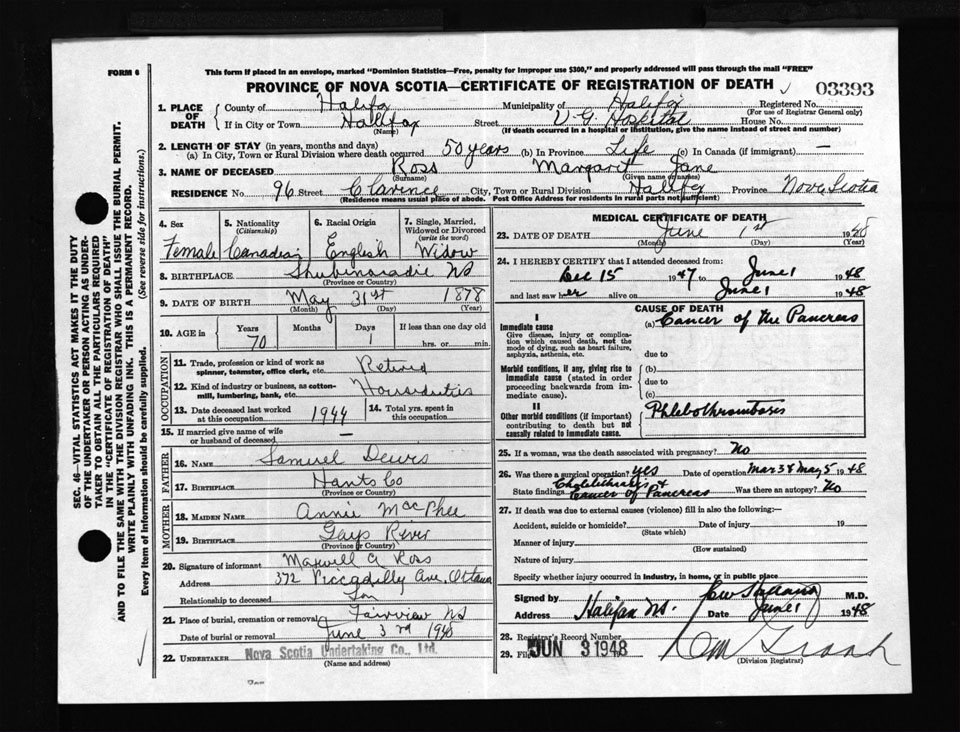 FORM 6
This form if placed in an envelope, marked "Dominion Statistics—Free, penalty for improper use $300," and properly addressed will pass through the mail "FREE"
PROVINCE OF NOVA SCOTIA—CERTIFICATE OF REGISTRATION OF DEATH
03393
1. PLACE OF DEATH
County of Halifax Municipality of Halifax Registered No.
(For use of Registrar General only)
If in City or Town Halifax Street V. G. Hospital House No.
(Name) (If death occurred in a hospital or institution, give the name instead of street and number)
2. LENGTH OF STAY (in years, months and days)
(a) In City, Town or Rural Division where death occurred 50 years (b) In Province Life (c) In Canada (if immigrant) —
3. NAME OF DECEASED Ross Margaret Jane
(Surname) (Given name or names)
RESIDENCE No. 96 Street Clarence City, Town or Rural Division Halifax Province Nova Scotia
(Residence means usual place of abode. Post Office Address for residents in rural parts not sufficient)
4. Sex
Female
5. Nationality
(Citizenship)
Canadian
6. Racial Origin
English
7. Single, Married, Widowed or Divorced
(write the word)
Widow
8. BIRTHPLACE Shubenacadie NS
(Province or Country)
9. DATE OF BIRTH May 31st 1878
(Month) (Day) (Year)
10. AGE in Years Months Days If less than one day old
70 1 hrs. or min.
OCCUPATION
11. Trade, profession or kind of work as spinner, teamster, office clerk, etc. Retired
12. Kind of industry or business, as cotton-mill, lumbering, bank, etc. Houseduties
13. Date deceased last worked at this occupation 1944
14. Total yrs. spent in this occupation
15. If married give name of wife or husband of deceased —
FATHER
16. NAME Samuel
17. BIRTHPLACE Hants Co
(Province or Country)
MOTHER
18. MAIDEN NAME Annie MacPhee
19. BIRTHPLACE Gays River
(Province or Country)
20. Signature of informant Maxwell A Ross
Address 372 Piccadilly Ave. Ottawa
Relationship to deceased Son
21. Place of burial, cremation or removal Fairview NS
Date of burial or removal June 3rd 1948
22. UNDERTAKER Nova Scotia Undertaking Co., Ltd.
(Name and address)
MEDICAL CERTIFICATE OF DEATH
23. DATE OF DEATH June 1st 1948
(Month) (Day) (Year)
24. I HEREBY CERTIFY that I attended deceased from:
Dec 15 1947 to June 1 1948
and last saw her alive on June 1 1948
CAUSE OF DEATH
I
Immediate cause
Give disease, injury or complication which caused death, not the mode of dying, such as heart failure, asphyxia, asthenia, etc.
(a) Cancer of the Pancreas
due to
Morbid conditions, if any, giving rise to immediate cause (stated in order proceeding backwards from immediate cause).
(b)
due to
(c)
II
Other morbid conditions (if important) contributing to death but not causally related to immediate cause.
Phlebothrombosis
25. If a woman, was the death associated with pregnancy? No
26. Was there a surgical operation? yes Date of operation Mar 3 & May 5 1948
State findings Cholelithiasis & Cancer of Pancreas Was there an autopsy? No
27. If death was due to external causes (violence) fill in also the following:—
Accident, suicide or homicide? Date of injury 19
(State which)
Manner of injury
(How sustained)
Nature of injury
Specify whether injury occurred in industry, in home, or in public place
Signed by M.D.
Address Halifax NS. Date June 1 1948
28. Registrar's Record Number
29. JUN 3 1948
(Division Registrar)
SEC. 46—VITAL STATISTICS ACT MAKES IT THE DUTY OF THE UNDERTAKER OR PERSON ACTING AS UNDERTAKER TO OBTAIN ALL THE PARTICULARS REQUIRED IN THE "CERTIFICATE OF REGISTRATION OF DEATH" AND TO FILE THE SAME WITH THE DIVISION REGISTRAR WHO SHALL ISSUE THE BURIAL PERMIT.
WRITE PLAINLY WITH UNFADING INK. THIS IS A PERMANENT RECORD.
Every item of information should be carefully supplied. (See reverse side for instructions.)